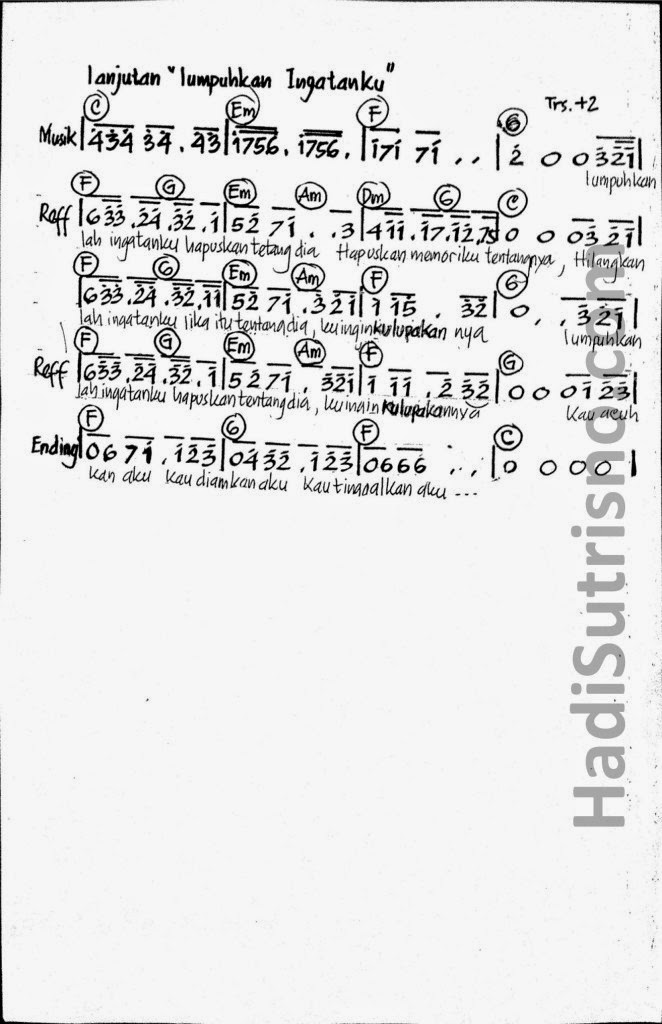 lanjutan "lumpuhkan Ingatanku"
Trs. +2
C Em F G
Musik | 434 34 . 43 | 1756 . 1756 . | 171 71 . . | 2 0 0 321 |
lumpuhkan
F G Em Am Dm G C
Reff | 633 .24 .32 .1 | 52 71 . .3 | 4 11 .17 .12 ,75 | 0 0 03 21 |
lah ingatanku hapuskan tetang dia Hapuskan memoriku tentangnya, Hilangkan
F G Em Am F G
| 633 .24 .32 .11 | 52 71 .321 | 1 15 . 32 | 0 . . 321 |
lah ingatanku jika itu tentang dia, kuingin kulupakan nya lumpuhkan
F G Em Am F G
Reff | 633 .24 .32 .1 | 52 71 . 321 | 1 11 . 2 32 | 0 0 0123 |
lah ingatanku hapuskan tentang dia, kuingin kulupakannya Kau acuh
F G F C
Ending | 06 71 .123 | 0432 .123 | 0666 . . | 0 0 0 0 |
kan aku kau diamkan aku kau tinggalkan aku ...
HadiSutrisno.com